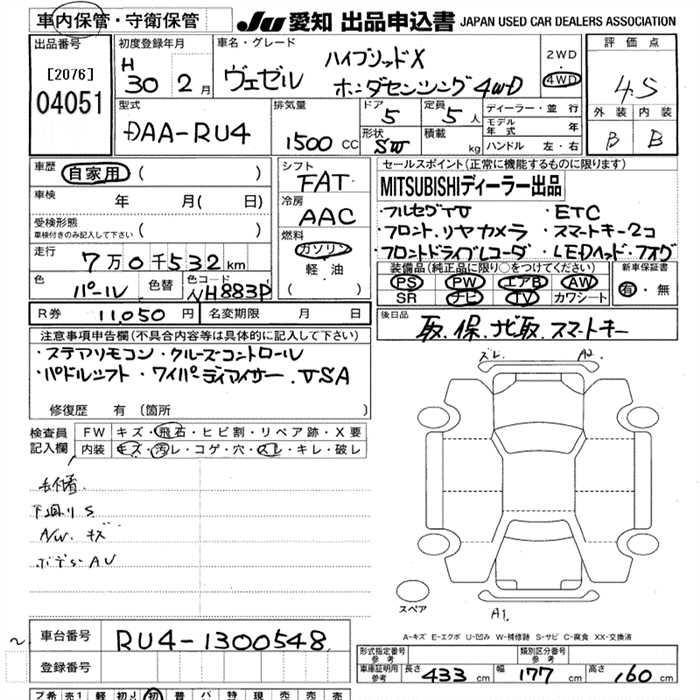 車内保管・守衛保管
JU 愛知 出品申込書 JAPAN USED CAR DEALERS ASSOCIATION
出品番号
[2076]
04051
初度登録年月
H 30 2月
車名・グレード
ヴェゼル
ハイブリッドX
ホンダセンシング4WD
2WD
4WD
評価点
4.5
外装 内装
B B
型式
DAA-RU4
排気量
1500 CC
ドア
5
形状
SW
定員
5人
積載
kg
ディーラー・並行
モデル年式 年
ハンドル 左・右
車歴
自家用 ( )
車検
年 月( 日)
受検形態
車検付きのみ記入して下さい ( )
走行
7万0千532km
色
パール
色替
色コード
NH883P
シフト
FAT
冷房
AAC
燃料
ガソリン
軽油
セールスポイント(正常に機能するものに限ります)
MITSUBISHIディーラー出品
・フルセグTV ・ETC
・フロント、リヤカメラ ・スマートキー2コ
・フロントドライブレコーダ ・LEDヘッド・フォグ
装備品(純正品に限り○をつけてください)
PS PW エアB AW
SR ナビ TV カワシート
新車保証書
有・無
R券 11,050円
名変期限 月 日
後日品
取.保.ナビ取.スマートキー
注意事項申告欄(不具合内容等は具体的に記入して下さい)
・ステアリモコン・クルーズコントロール
・パドルシフト・ワイパーディアイサー.VSA
修復歴 有 (箇所 )
検査員記入欄
FW キズ・飛石・ヒビ割・リペア跡・X要
内装 キズ・汚レ・コゲ・穴・スレ・キレ・破レ
下回りS
NW.キズ
ボデーAU
ズレ. A2.
スペア
A1.
A-キズ E-エクボ U-凹み W-補修跡 S-サビ C-腐食 XX-交換済
車台番号
RU4-1300548
登録番号
形式指定番号 参考
類別区分番号 参考
車庫証明用 参考
長さ 433 cm 幅 177 cm 高さ 160 cm
プ希売1軽初.初普バ特現売売売